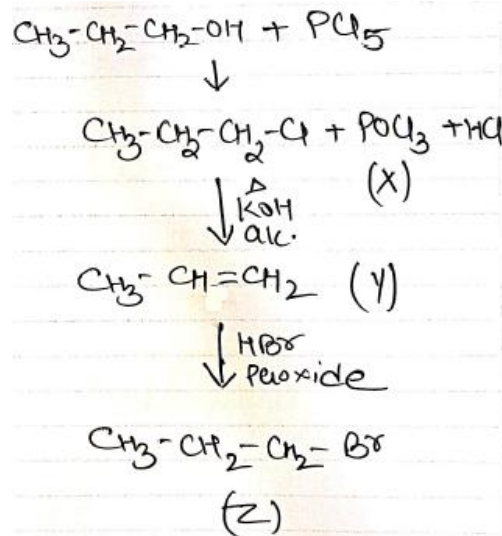 CH3-CH2-CH2-OH + PCl5
↓
CH3-CH2-CH2-Cl + POCl3 + HCl
(X)
Δ
KOH
alc.
CH3-CH=CH2 (Y)
HBr
Peroxide
CH3-CH2-CH2-Br
(Z)